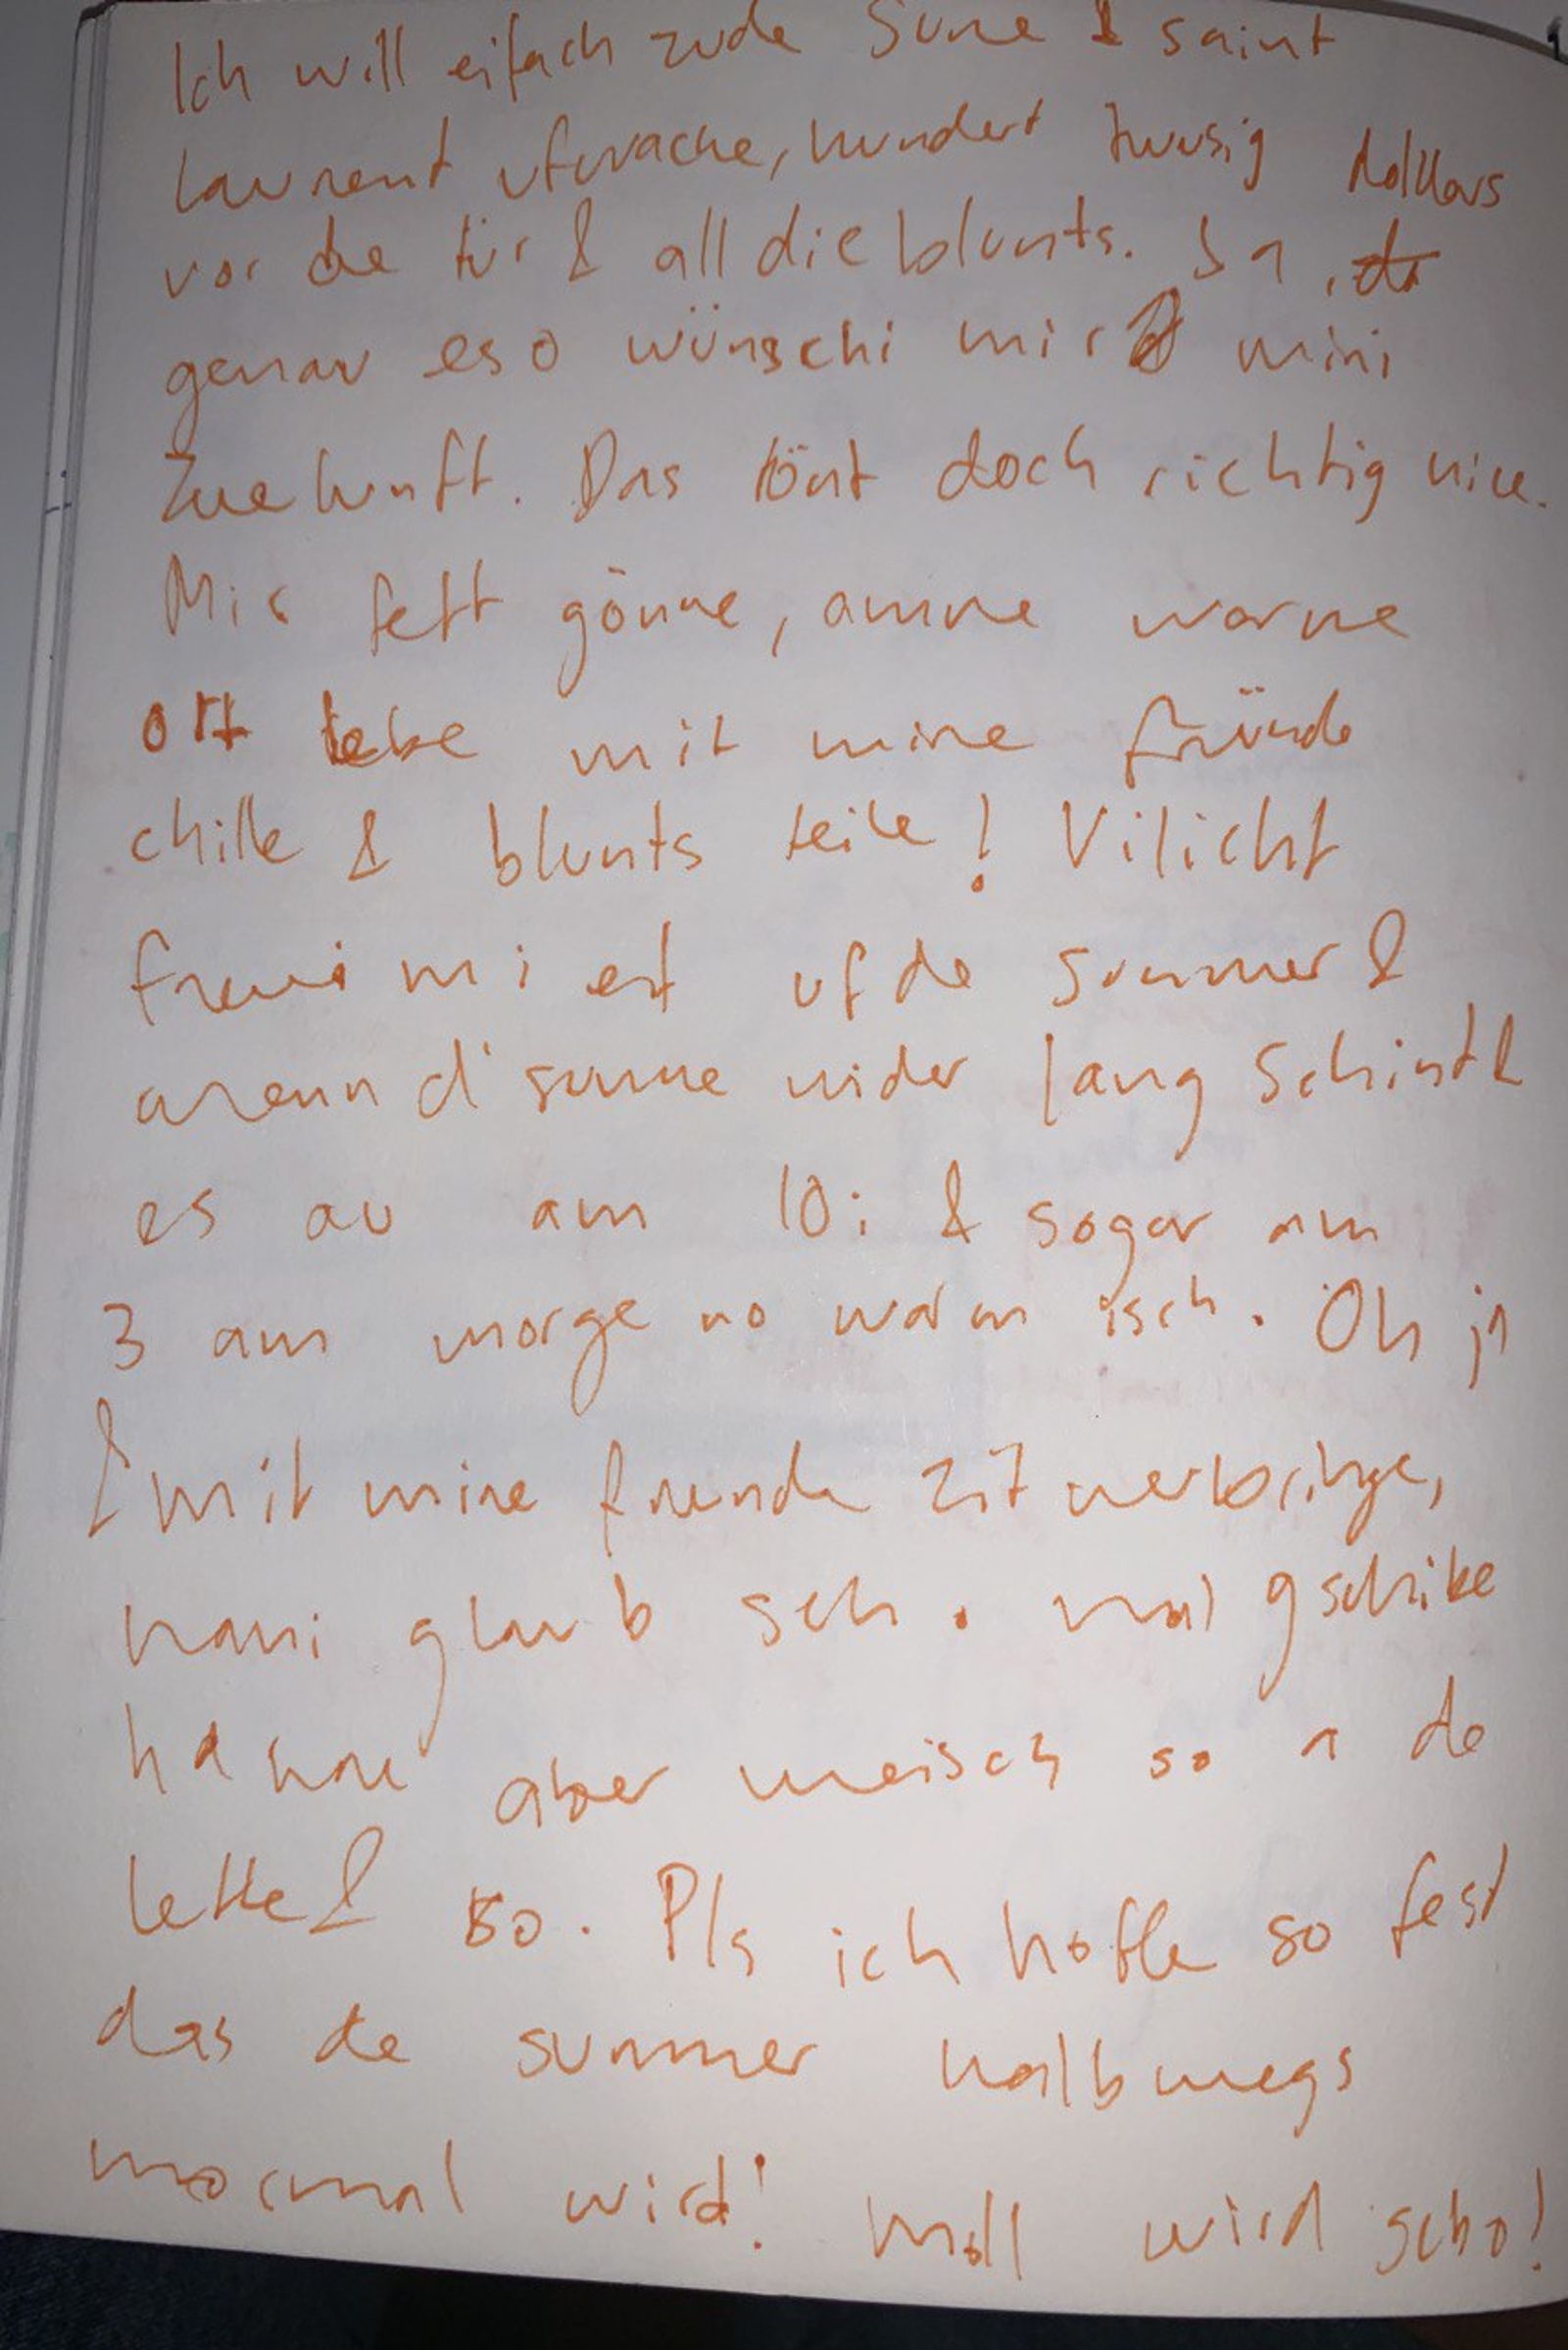 Ich will eifach zude Sune & saint
laurent ufwache, hundert tuusig dollars
vor de tür & all die blunts. Ja,
genau eso wünschi mir mini
Zuekunft. Das tönt doch richtig nice.
Mir fett gönne, amne warme
ort lebe mit mine fründe
chille & blunts teile! Vilicht
freui mi erst uf de summer &
wenn d'sunne wider lang schint &
es au am 10i & sogar am
3 am morge no warm isch. Oh ja
& mit mine freunde zit verbringe,
hani glaub scho mal gschribe
ha kane aber weisch so a de
lette & so. Pls ich hoffe so fest
das de summer halbwegs
normal wird! Moll wird scho!